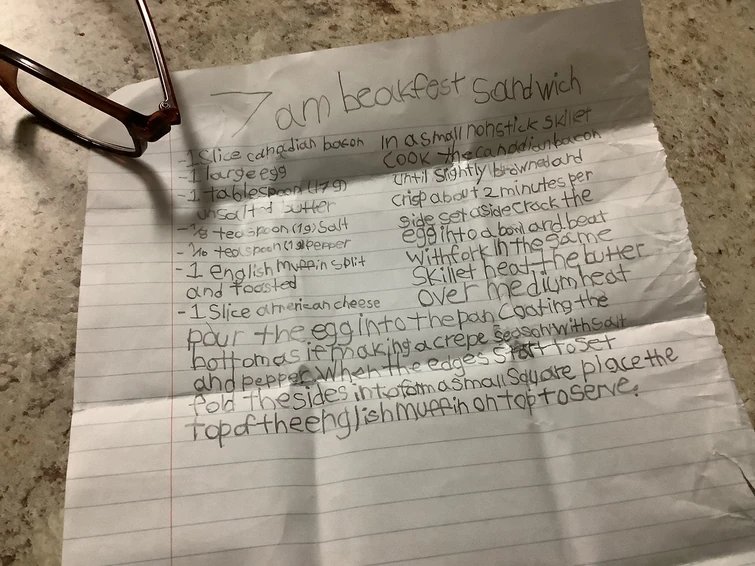 7 am beakfest sandwich
-1 Slice canadian bacon
-1 large egg
-1 tablespoon (179)
unsalted butter
-⅛ teaspoon (1g) Salt
-1/10 teaspoon (1g) pepper
-1 english muffin split
and toasted
-1 Slice american cheese
In a small nonstick skillet
cook the canadian bacon
until slightly browned and
crisp about 2 minutes per
side set aside crack the
egg into a bowl and beat
with fork In the same
Skillet heat the butter
over medium heat
pour the egg into the pan Coating the
bottom as if making a crepe season with Salt
and pepper When the edges Start to Set
fold the sides into form a small Square place the
top of the english muffin on top to serve.